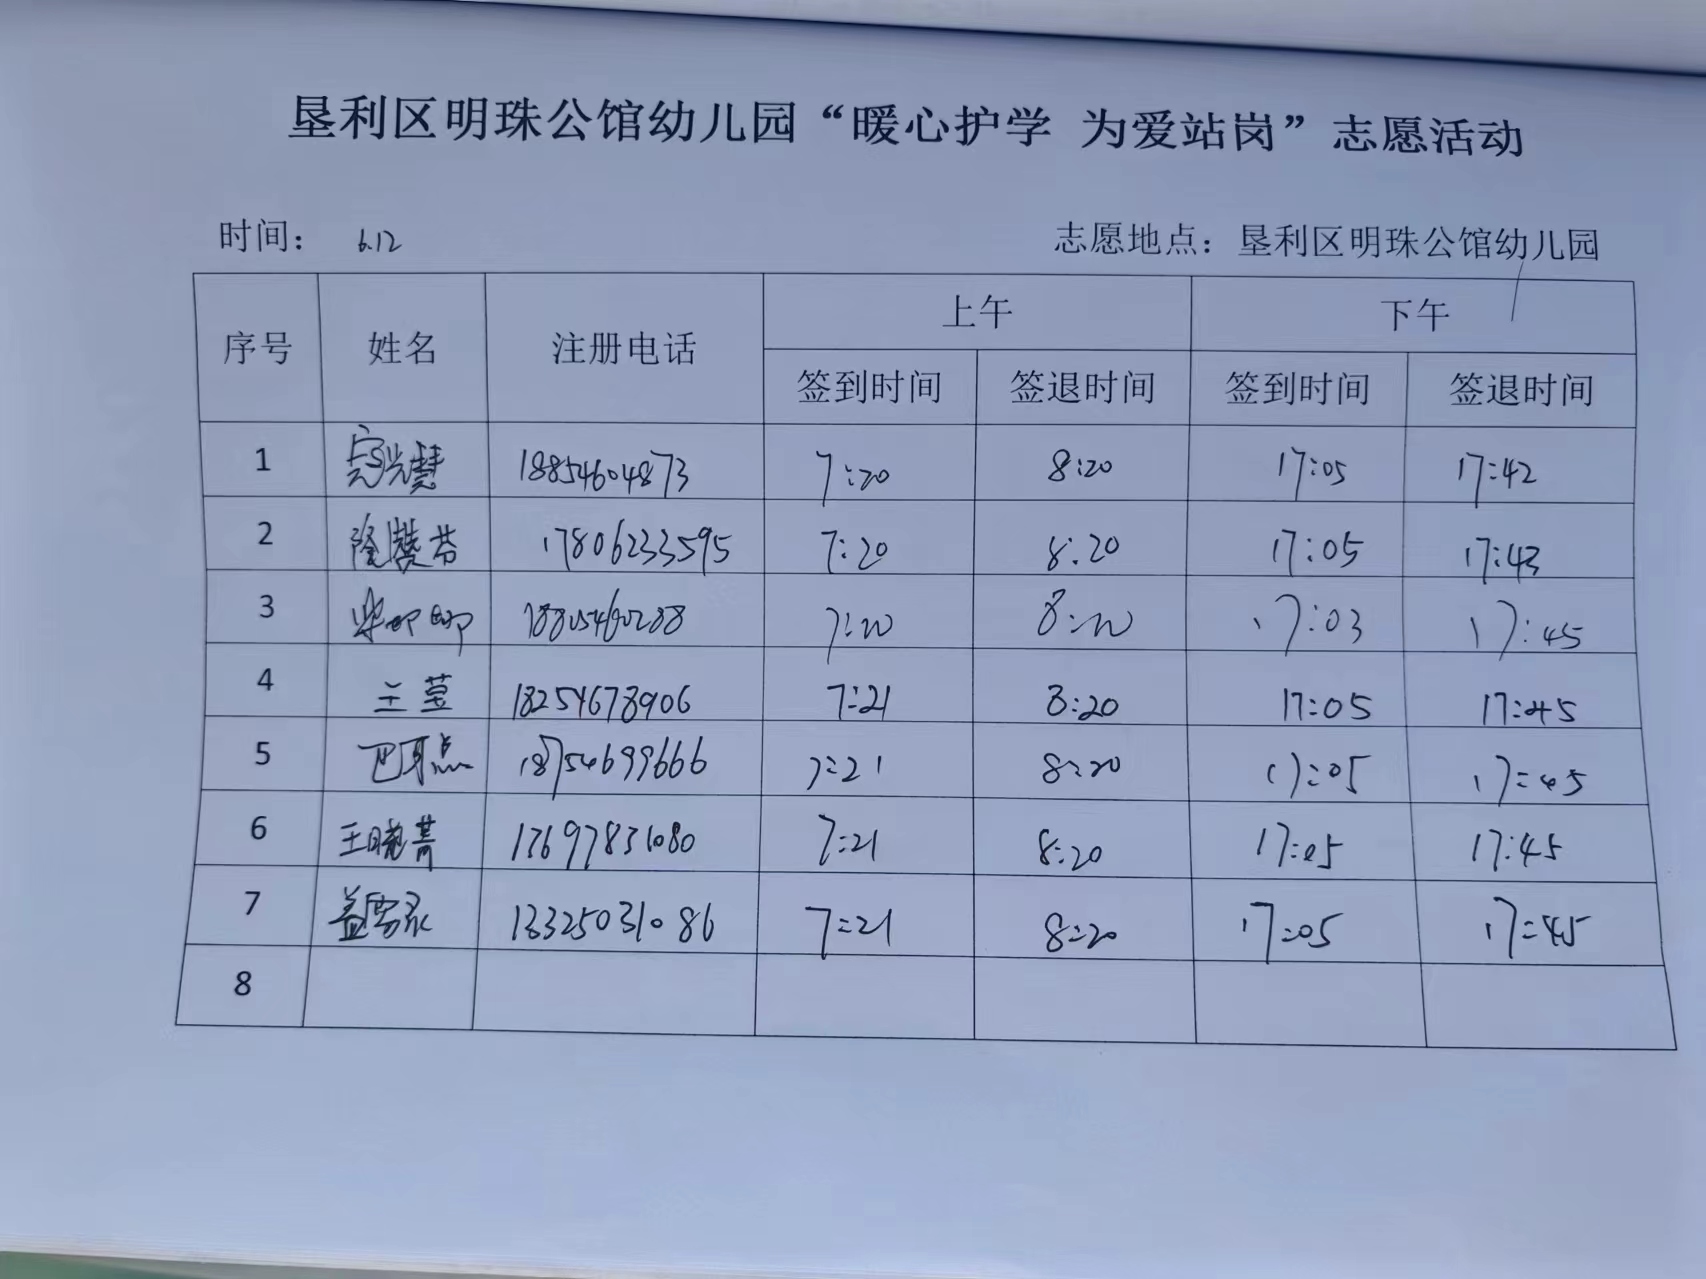 垦利区明珠公馆幼儿园“暖心护学 为爱站岗”志愿活动
时间： 6.12 志愿地点：垦利区明珠公馆幼儿园
序号 姓名 注册电话 上午 下午
签到时间 签退时间 签到时间 签退时间
1 光慧 18854604873 7:20 8:20 17:05 17:42
2 隆赞芬 17806233595 7:20 8:20 17:05 17:43
3 柴 18805460288 7:20 8:20 17:03 17:45
4 王莹 18254678906 7:21 8:20 17:05 17:45
5 18754699666 7:21 8:20 17:05 17:45
6 王晓菁 13697831080 7:21 8:20 17:05 17:45
7 盖 13325031086 7:21 8:20 17:05 17:45
8